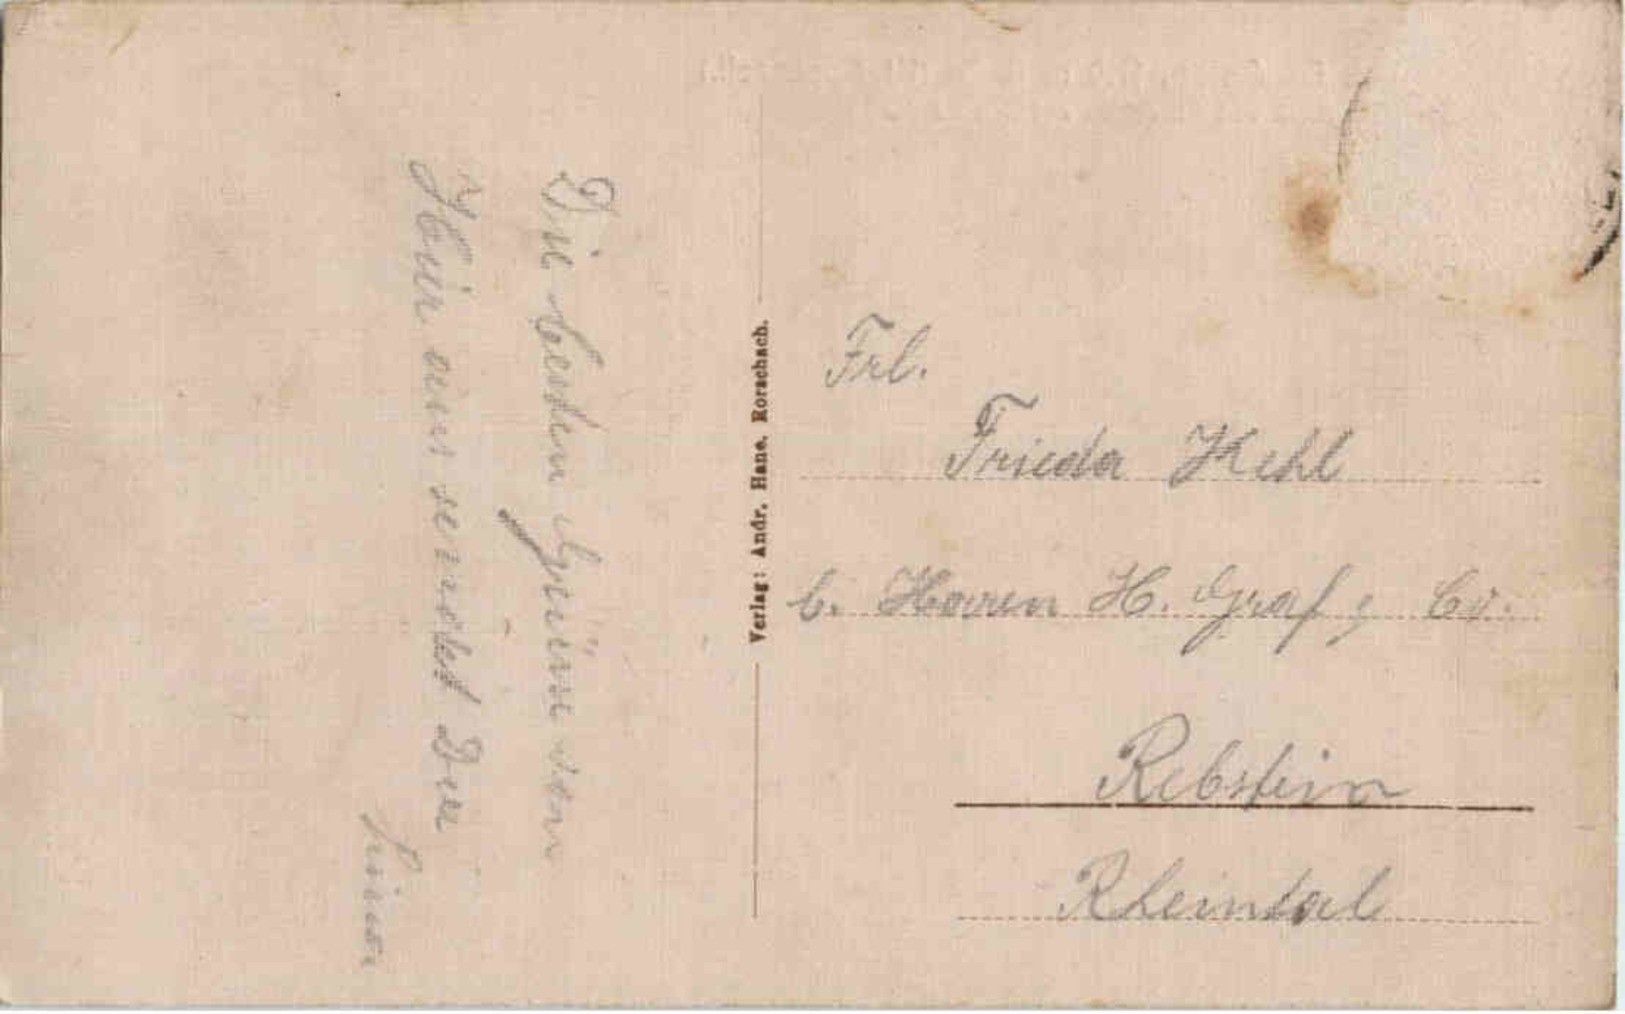 Die besten Grüsse von
Hier aus sendet Dir
Verlag: Andr. Hane, Rorschach.
Frl.
Frieda Kehl
b. Herren H. Graf & Co.
Rebstein
Rheintal